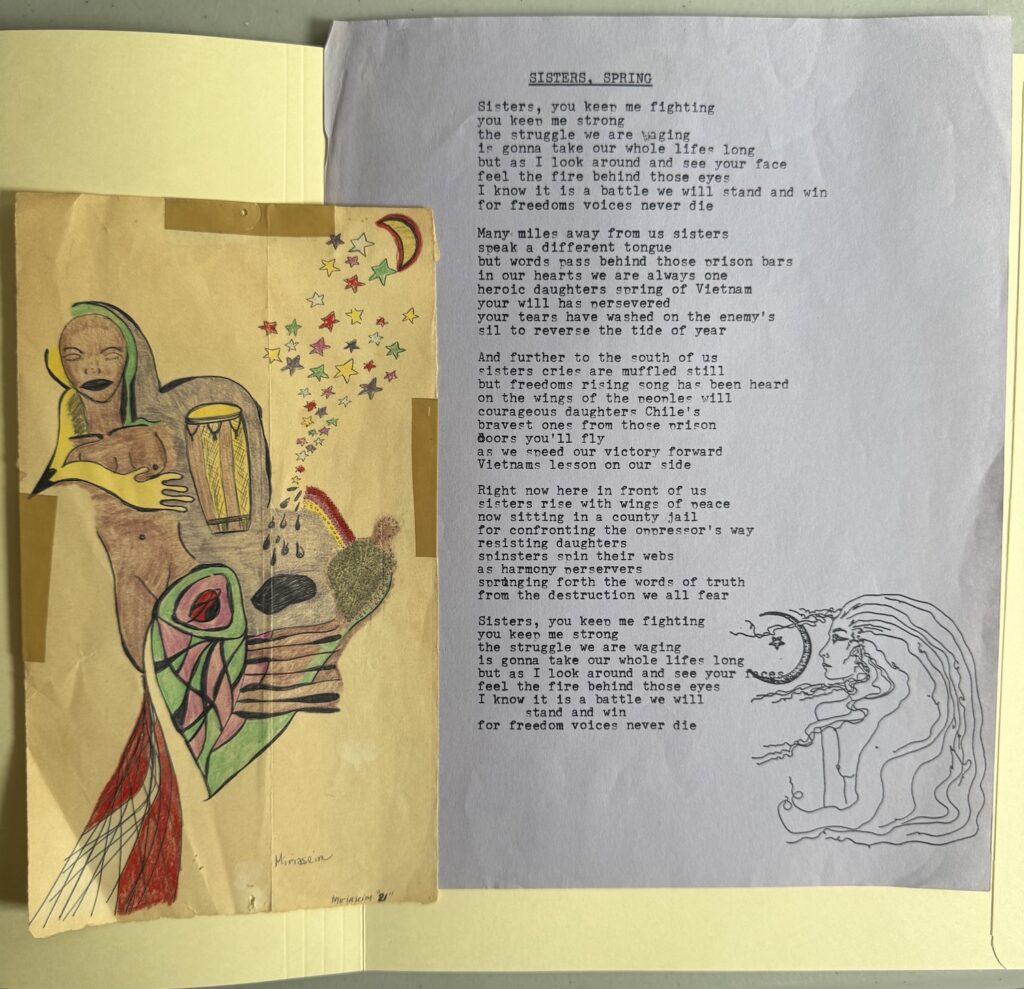 SISTERS, SPRING
Sisters, you keep me fighting
you keep me strong
the struggle we are waging
is gonna take our whole lifes long
but as I look around and see your face
feel the fire behind those eyes
I know it is a battle we will stand and win
for freedoms voices never die
Many miles away from us sisters
speak a different tongue
but words pass behind those prison bars
in our hearts we are always one
heroic daughters spring of Vietnam
your will has persevered
your tears have washed on the enemy's
sil to reverse the tide of year
And further to the south of us
sisters cries are muffled still
but freedoms rising song has been heard
on the wings of the peoples will
courageous daughters Chile's
bravest ones from those prison
doors you'll fly
as we speed our victory forward
Vietnams lesson on our side
Right now here in front of us
sisters rise with wings of peace
now sitting in a county jail
for confronting the oppressor's way
resisting daughters
spinsters spin their webs
as harmony perservers
springing forth the words of truth
from the destruction we all fear
Sisters, you keep me fighting
you keep me strong
the struggle we are waging
is gonna take our whole lifes long
but as I look around and see your faces
feel the fire behind those eyes
I know it is a battle we will
stand and win
for freedom voices never die